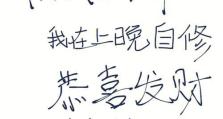 我在上晚自修
恭喜发财